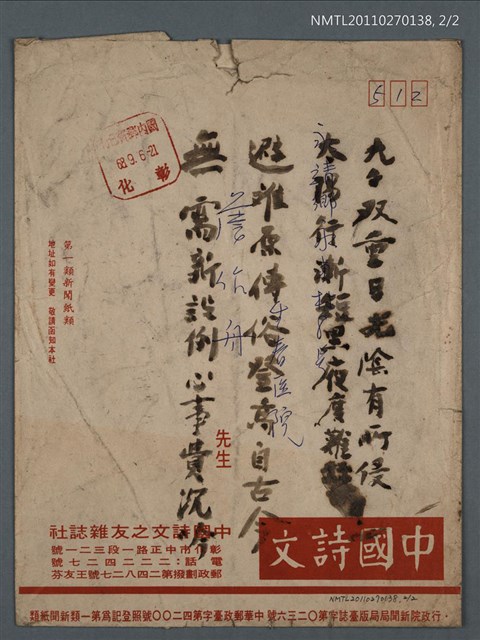 NMTL20110270138, 2/2
512
九々双重日光陰有所侵
秋陽雖漸短黑夜度難
避难原傳俗登高自古今
無窩新設例心事費沉吟
永靖鄉
長春医院
詹作舟
先生
國內郵資已付
68.9.6-21
彰化
第一類新聞紙類
地址如有變更 敬請函知本社
中國詩文之友雜誌社
彰化市中正路一段三二一號
電話：二二二四二七號
郵政劃撥第二四八二七號王友芬
中國詩文
行政院新聞局局版臺誌字第〇二三六號 中華郵政臺字第四二〇〇號照登記為第一類新聞紙類
NMTL20110270138, 2/2